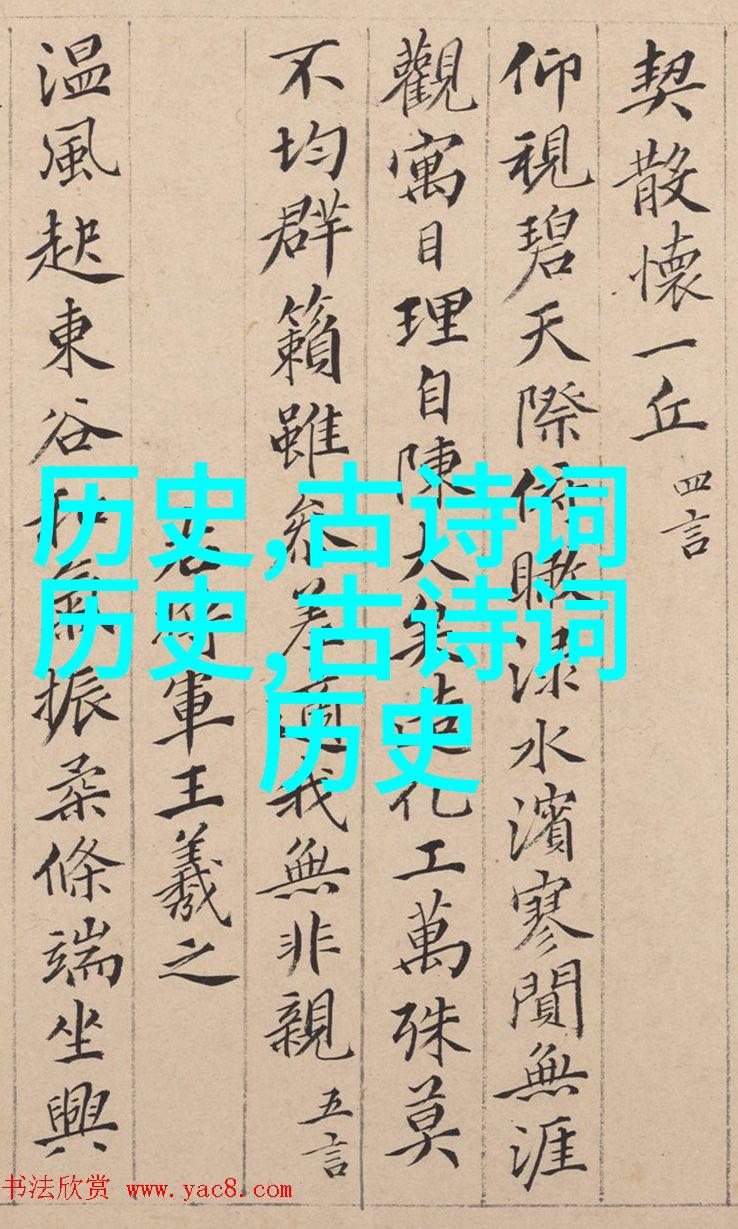 契散懷一丘 四言
仰視碧天際俯瞰渌水濱寥閴無涯
觀寓目理自陳大矣造化工萬殊莫
不均群籟雖参差適我無非親 五言
右將軍王羲之
温風起東谷和氣振柔條端坐興
历史,古诗词
历史,古诗词
历史
书法欣赏 www.yac8.com